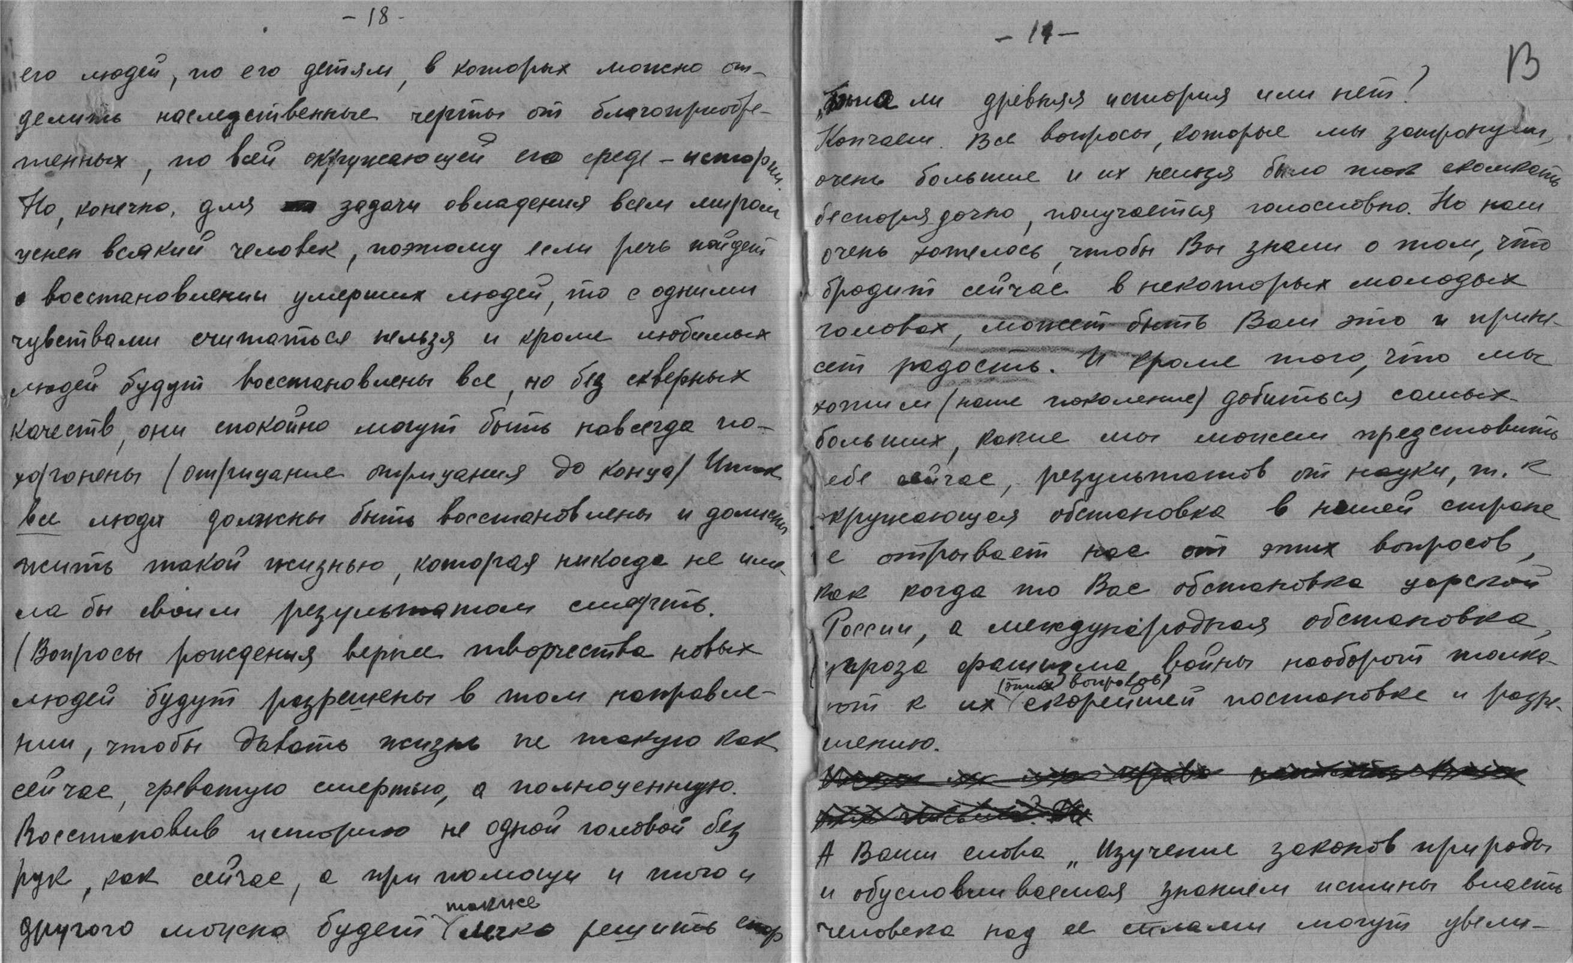 - 18 -
его людей, по его детям, в которых можно от-
делить наследственные черты от благоприобре-
тенных, по всей окружающей его среде - истории.
Но, конечно, для задачи овладения всем миром
ценен всякий человек, поэтому если речь пойдет
о восстановлении умерших людей, то с одними
чувствами считаться нельзя и кроме любимых
людей будут восстановлены все, но без скверных
качеств, они спокойно могут быть навсегда по-
хоронены (отрицание отрицания до конца) Итак
все люди должны быть восстановлены и должны
жить такой жизнью, которая никогда не име-
ла бы своим результатом смерть.
(Вопросы рождения вернее творчества новых
людей будут разрешены в том направле-
нии, чтобы давать жизнь не такую как
сейчас, чреватую смертью, а полноценную.
Восстановив историю не одной головой без
рук, как сейчас, а при помощи и того и
также
другого можно будет легко решить спор
- 19 -
В
"Была ли древняя история или нет?
Кончаем. Все вопросы, которые мы затронули,
очень большие и их нельзя было так скомкать
беспорядочно, получается голословно. Но нам
очень хотелось, чтобы Вы знали о том, что
бродит сейчас в некоторых молодых
головах, может быть Вам это и прине-
сет радость. И кроме того, что мы
хотим (наше поколение) добиться самых
больших, какие мы можем представить
себе сейчас, результатов от науки, т. к
окружающая обстановка в нашей стране
не отрывает нас от этих вопросов,
как когда то Вас обстановка царской
России, а международная обстановка,
угроза фашизма, войны наоборот толка-
(этих вопросов)
ют к их скорейшей постановке и разре-
шению.
А Ваши слова „Изучение законов природы
и обусловливаемая знанием истины власть
человека над ее силами могут увели-